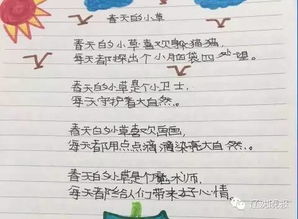 春天的小草
春天的小草喜欢躲猫猫,
每天都探出个小脑袋四处望。
春天的小草是个小卫士,
每天守护着大自然。
春天的小草喜欢画画,
每天都用点点滴滴染亮大自然。
春天的小草是个魔术师,
每天都给人们带来好心情。